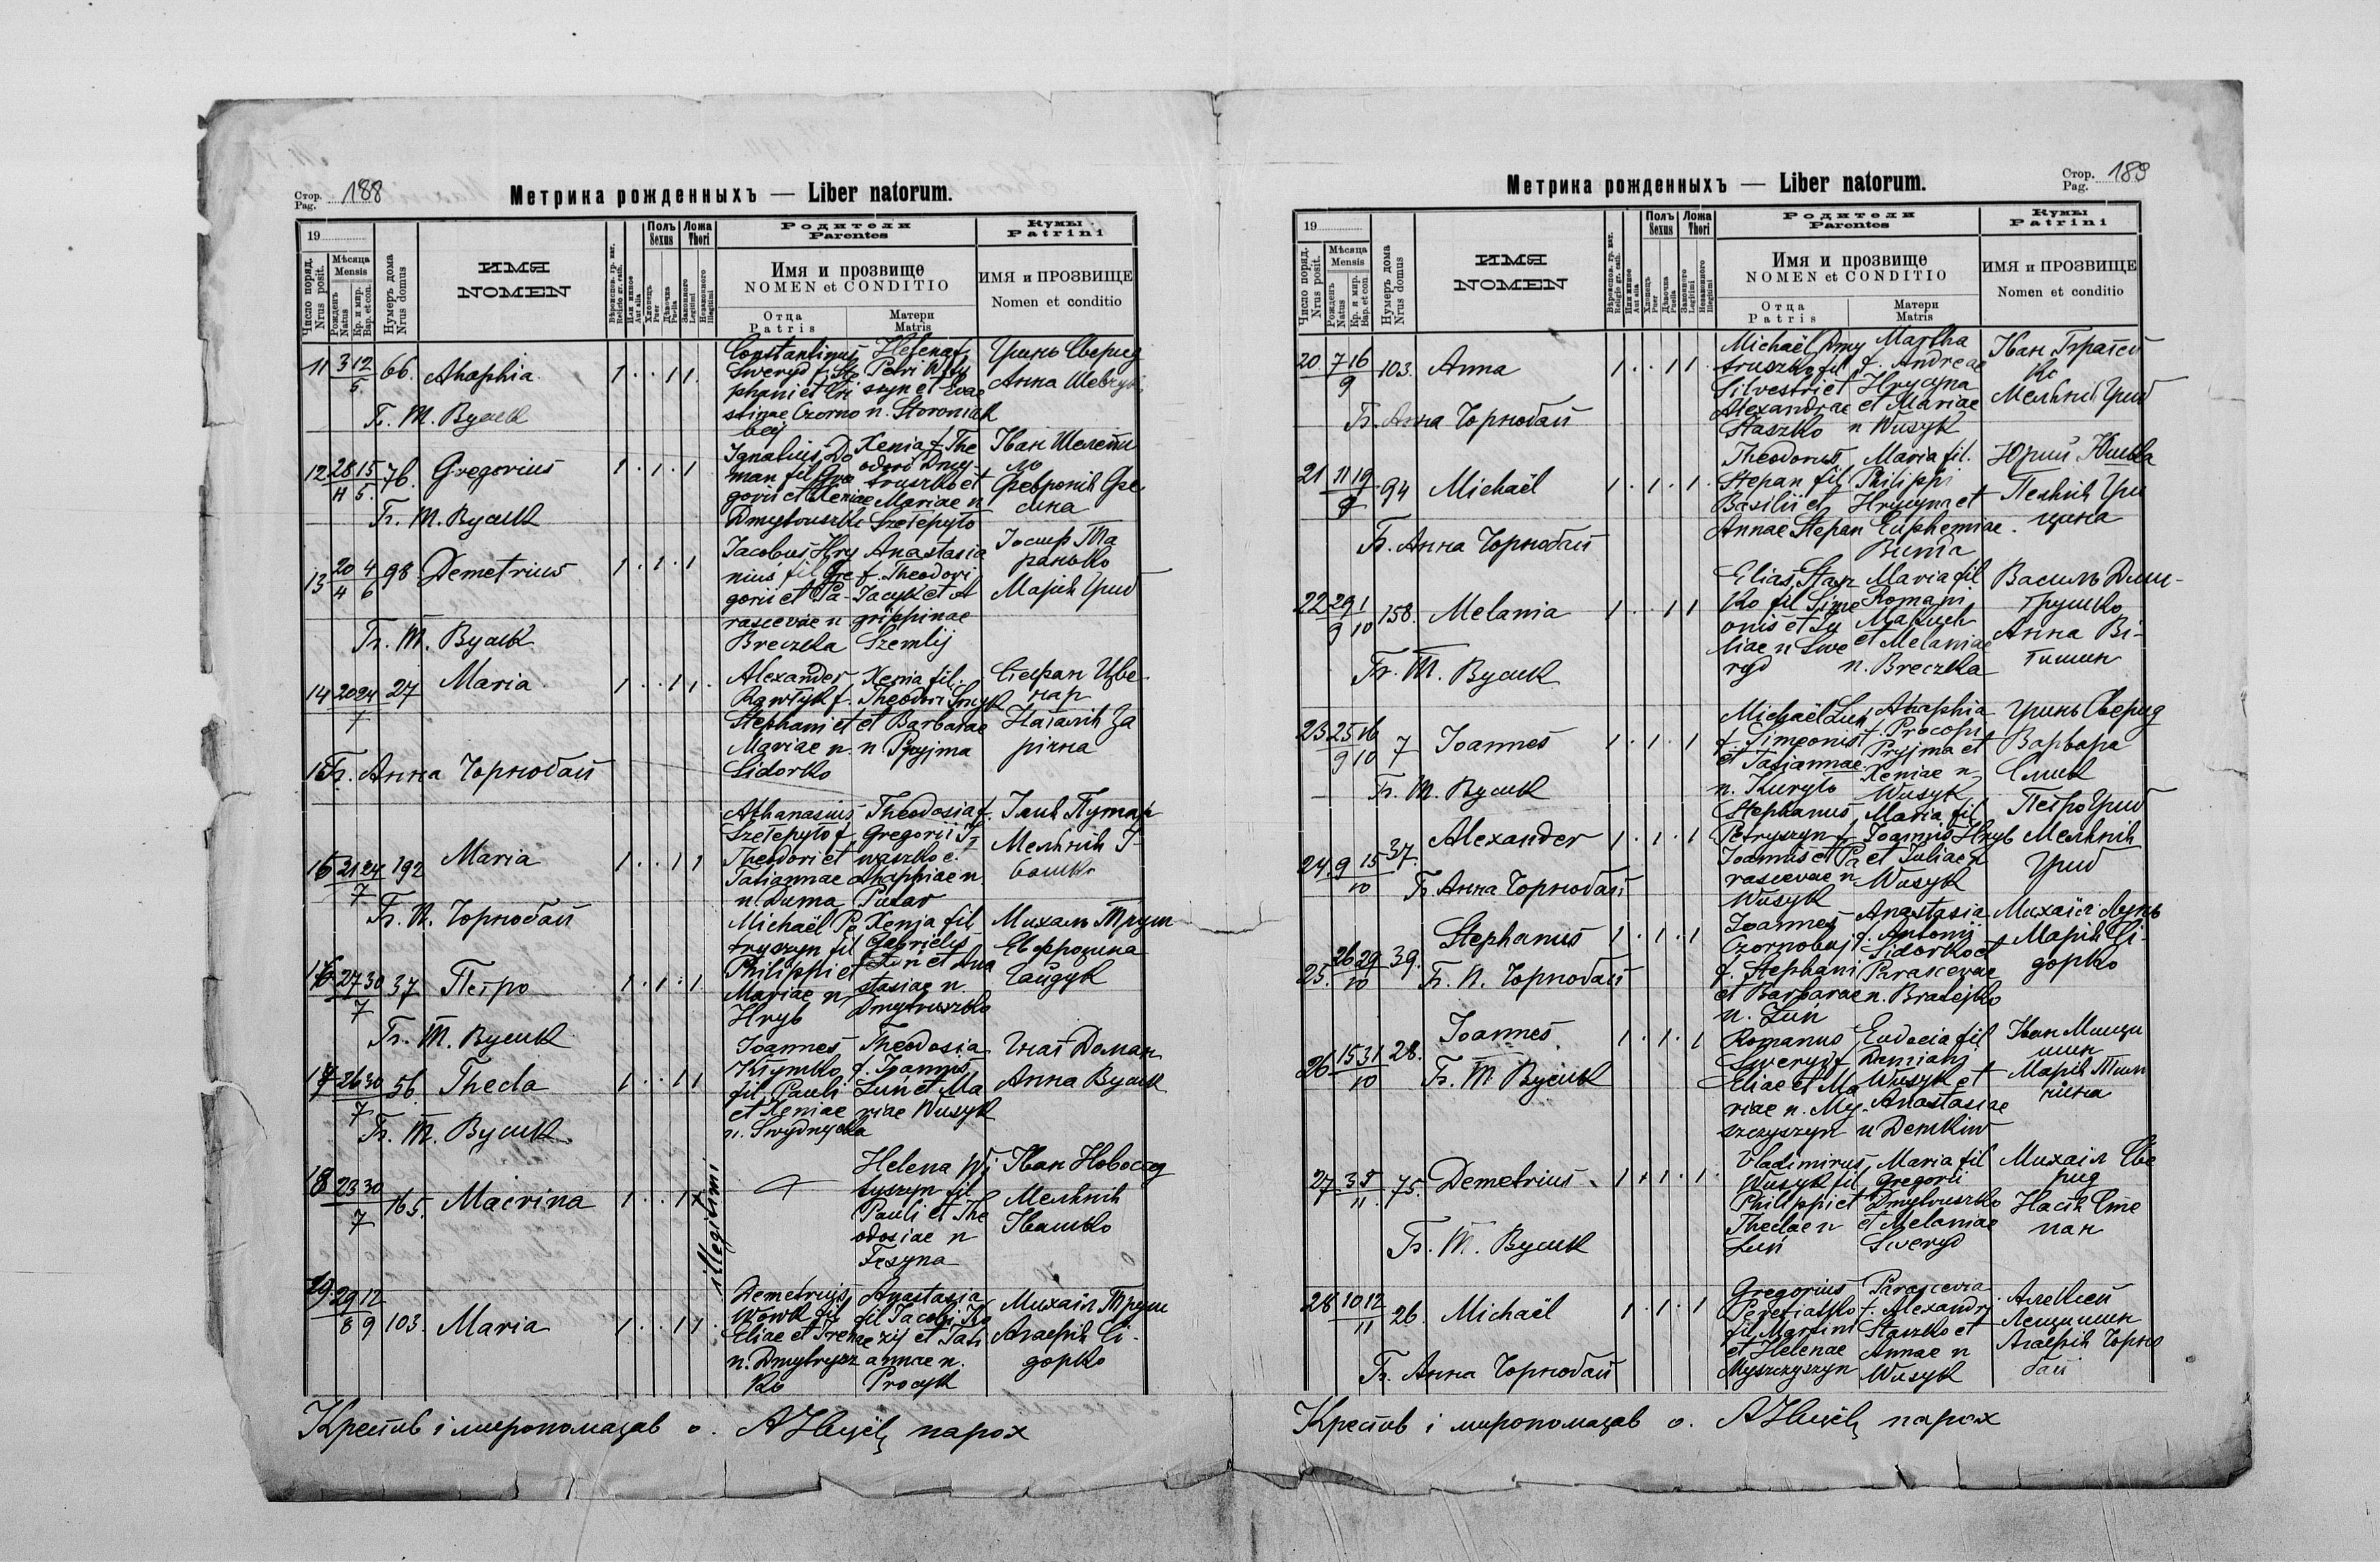 Стор. Pag. 188
Метрика рожденныхъ — Liber natorum.
19
Число поряд. Nrus posit.
Мѣсяца Mensis
Рожденъ Natus
Кр. и мир. Bap. et con.
Нумеръ дома Nrus domus
ИМЯ
NOMEN
Вѣроиспов. гр. кат. Religio gr. cath.
Или иное Aut alia
Полъ Sexus
Хлопець Puer
Дѣвочка Puella
Ложа Thori
Законного Legitimi
Незаконного Illegitimi
Родители
Parentes
Имя и прозвище
NOMEN et CONDITIO
Отца Patris
Матери Matris
Кумы
Patrini
ИМЯ и ПРОЗВИЩЕ
Nomen et conditio
11 3 12 5. 66. Ahaphia 1 . . 1 1 .
Constantinus Sweryd f. Ste phani et Chri stinae Czorno bej
Helena f. Petri Wity szyn et Evae n. Storoniak
Гринь Сверид
Анна Шевчук
Б. М. Вусик
12 28 15 4 5. 76. Gregorius 1 . 1 . 1
Ignatius Do man fil Gre gorii et Xeniae Dmytruszko
Xenia f. The odori Dmy truszko et Mariae n Szełepyło
Іван Шелепи ло
Февронія Фе сина
Б. М. Вусик
13 20 4 4 6 98 Demetrius 1 . 1 . 1
Jacobus Hry niuś fil Gre gorii et Pa rascevae n Breczka
Anastasia f. Theodori Jacyk et A grippinae Szemlij
Йосиф Та ранько
Марія Гриб
Б. М. Вусик
14 20 24 7 27 Maria 1 . . 1 1 .
Alexander Rawłyk f. Stephani et Mariae n. Sidorko
Xenia fil. Theodori Smyk et Barbarae n Pryjma
Стефан Цве нар
Наталія За річна
Б. Анна Чорнобай
15 21 24 7 192 Maria 1 . . 1 1
Athanasius Szełepyło f. Theodori et Tatiannae n Duma
Theodosia f. Gregorii I waszko et Ahaphiae n. Putar
Ілия Путар
Мелянія І вашко
Б. П. Чорнобай
16 27 30 7 37 Петро 1 . 1 . 1
Michaël Pe tryszyn fil Philippi et Mariae n Hryb
Xenja fil Gabriëlis Łuń et Ana stasiae n. Dmytruszko
Михаль Труш
Евфрозина Гайдук
Б. М. Вусик
17 26 30 7 56. Thecla 1 . . 1 1
Joannes Kłymko fil Pauli et Xeniae n. Swydnycka
Theodosia f. Joannis Łuń et Ma riae Wusyk
Гнат Доман
Анна Вусик
Б. М. Вусик
18 23 30 7 165. Macrina 1 . . 1 +
illegitimi
Helena Wi tyszyn fil Pauli et The odosiae n Fesyna
Іван Новосад
Мелянія Івашко
19. 29 12 8 9 103. Maria 1 . . 1 1 .
Demetrius Wowk fil Eliae et Irenae n. Dmytrysz ko
Anastasia fil Jacobi Ko zij et Tati annae n. Procyk
Михаіл Труш
Агафія Сі дорко
Крестив і миропомазав о. парох
Стор. Pag. 189
Метрика рожденныхъ — Liber natorum.
19
Число поряд. Nrus posit.
Мѣсяца Mensis
Рожденъ Natus
Кр. и мир. Bap. et con.
Нумеръ дома Nrus domus
ИМЯ
NOMEN
Вѣроиспов. гр. кат. Religio gr. cath.
Или иное Aut alia
Полъ Sexus
Хлопець Puer
Дѣвочка Puella
Ложа Thori
Законного Legitimi
Незаконного Illegitimi
Родители
Parentes
Имя и прозвище
NOMEN et CONDITIO
Отца Patris
Матери Matris
Кумы
Patrini
ИМЯ и ПРОЗВИЩЕ
Nomen et conditio
20 7 16 9 103. Anna 1 . . 1 1 .
Michaël Dmy truszko fil Silvestri et Alexandrae Staszko
Martha f. Andreae Hrycyna et Mariae n Wusyk
Іван Братей ко
Мелянія Гриб
Б. Анна Чорнобай
21 11 19 9 94 Michaël 1 . 1 . 1
Theodorus Stepan fil Basilii et Annae Stepan
Maria fil. Philippi Hrycyna et Euphemiae. Bunda
Юрий
Пелагія Гри цина
Б. Анна Чорнобай
22 29 1 9 10 158. Melania 1 . . 1 1
Elias Stasz ko fil Sime onis et Ju liae n Swe ryd
Maria fil Romani Matuch et Melaniae n. Breczka
Василь Дми трушко
Анна Ві тишин
Б. М. Вусик
23 25 16 9 10 7 Joannes 1 . 1 . 1
Michaël Łuń f. Simeonis et Tatiannae n. Kuryło
Ahaphia f. Procopi Pryjma et Xeniae n Wusyk
Гринь Сверид
Варвара Смик
Б. М. Вусик
24. 9 15 10 37. Alexander 1 . 1 . 1
Stephanus Petryszyn f. Joannis et Pa rascevae n Wusyk
Maria fil Joannis Hryb et Juliae n Wusyk
Петро Гриб
Мелянія Гриб
Б. Анна Чорнобай
25. 26 29 10 39. Stephanus 1 . 1 . 1
Joannes Czornobaj f. Stephani et Barbarae n. Łuń
Anastasia f. Antonij Sidorko et Parascevae n. Bratejko
Михаіл Лунь
Марія Сі дорко
Б. П. Чорнобай
26 15 31 10 28. Joannes 1 . 1 . 1
Romanus Sweryd f. Eliae et Ma riae n. My szczyszyn
Eudocia fil Demiani Wusyk et Anastasiae n Demkiw
Іван Мищи шин
Марія Тим чишна
Б. М. Вусик
27. 3 5 11. 75. Demetrius 1 . 1 . 1 .
Vladimirus Wusyk fil Philippi et Theclae n Łuń
Maria fil Gregorii Dmytruszko et Melaniae Sweryd
Михаіл Све рид
Настя Сте пан
Б. М. Вусик
28 10 12 11 26. Michaël 1 . 1 . 1
Gregorius Peretiatko fil Martini et Helenae Myszczyszyn
Parascevia f. Alexandri Staszko et Annae n Wusyk
Алексей Лещишин
Агафія Чорно бай
Б. Анна Чорнобай
Крестив і миропомазав о. парох